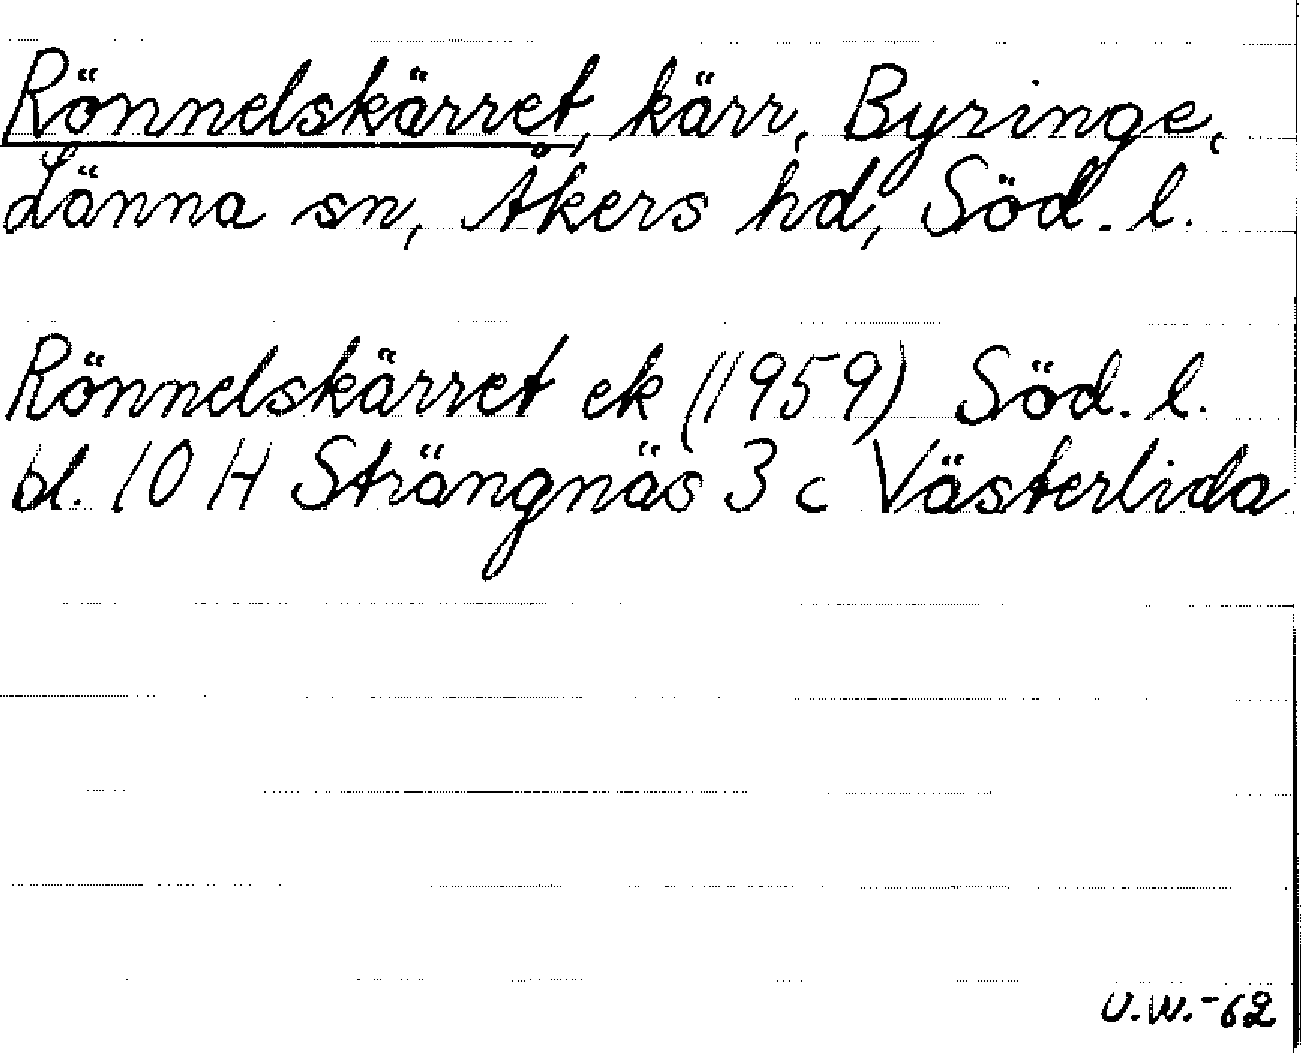 Rönnelskärret, kärr, Byringe,
Länna sn, Åkers hd, Söd. l.
Rönnelskärret ek (1959) Söd. l.
bl. 10 H Strängnäs 3 c Västerlida
U.W.-62